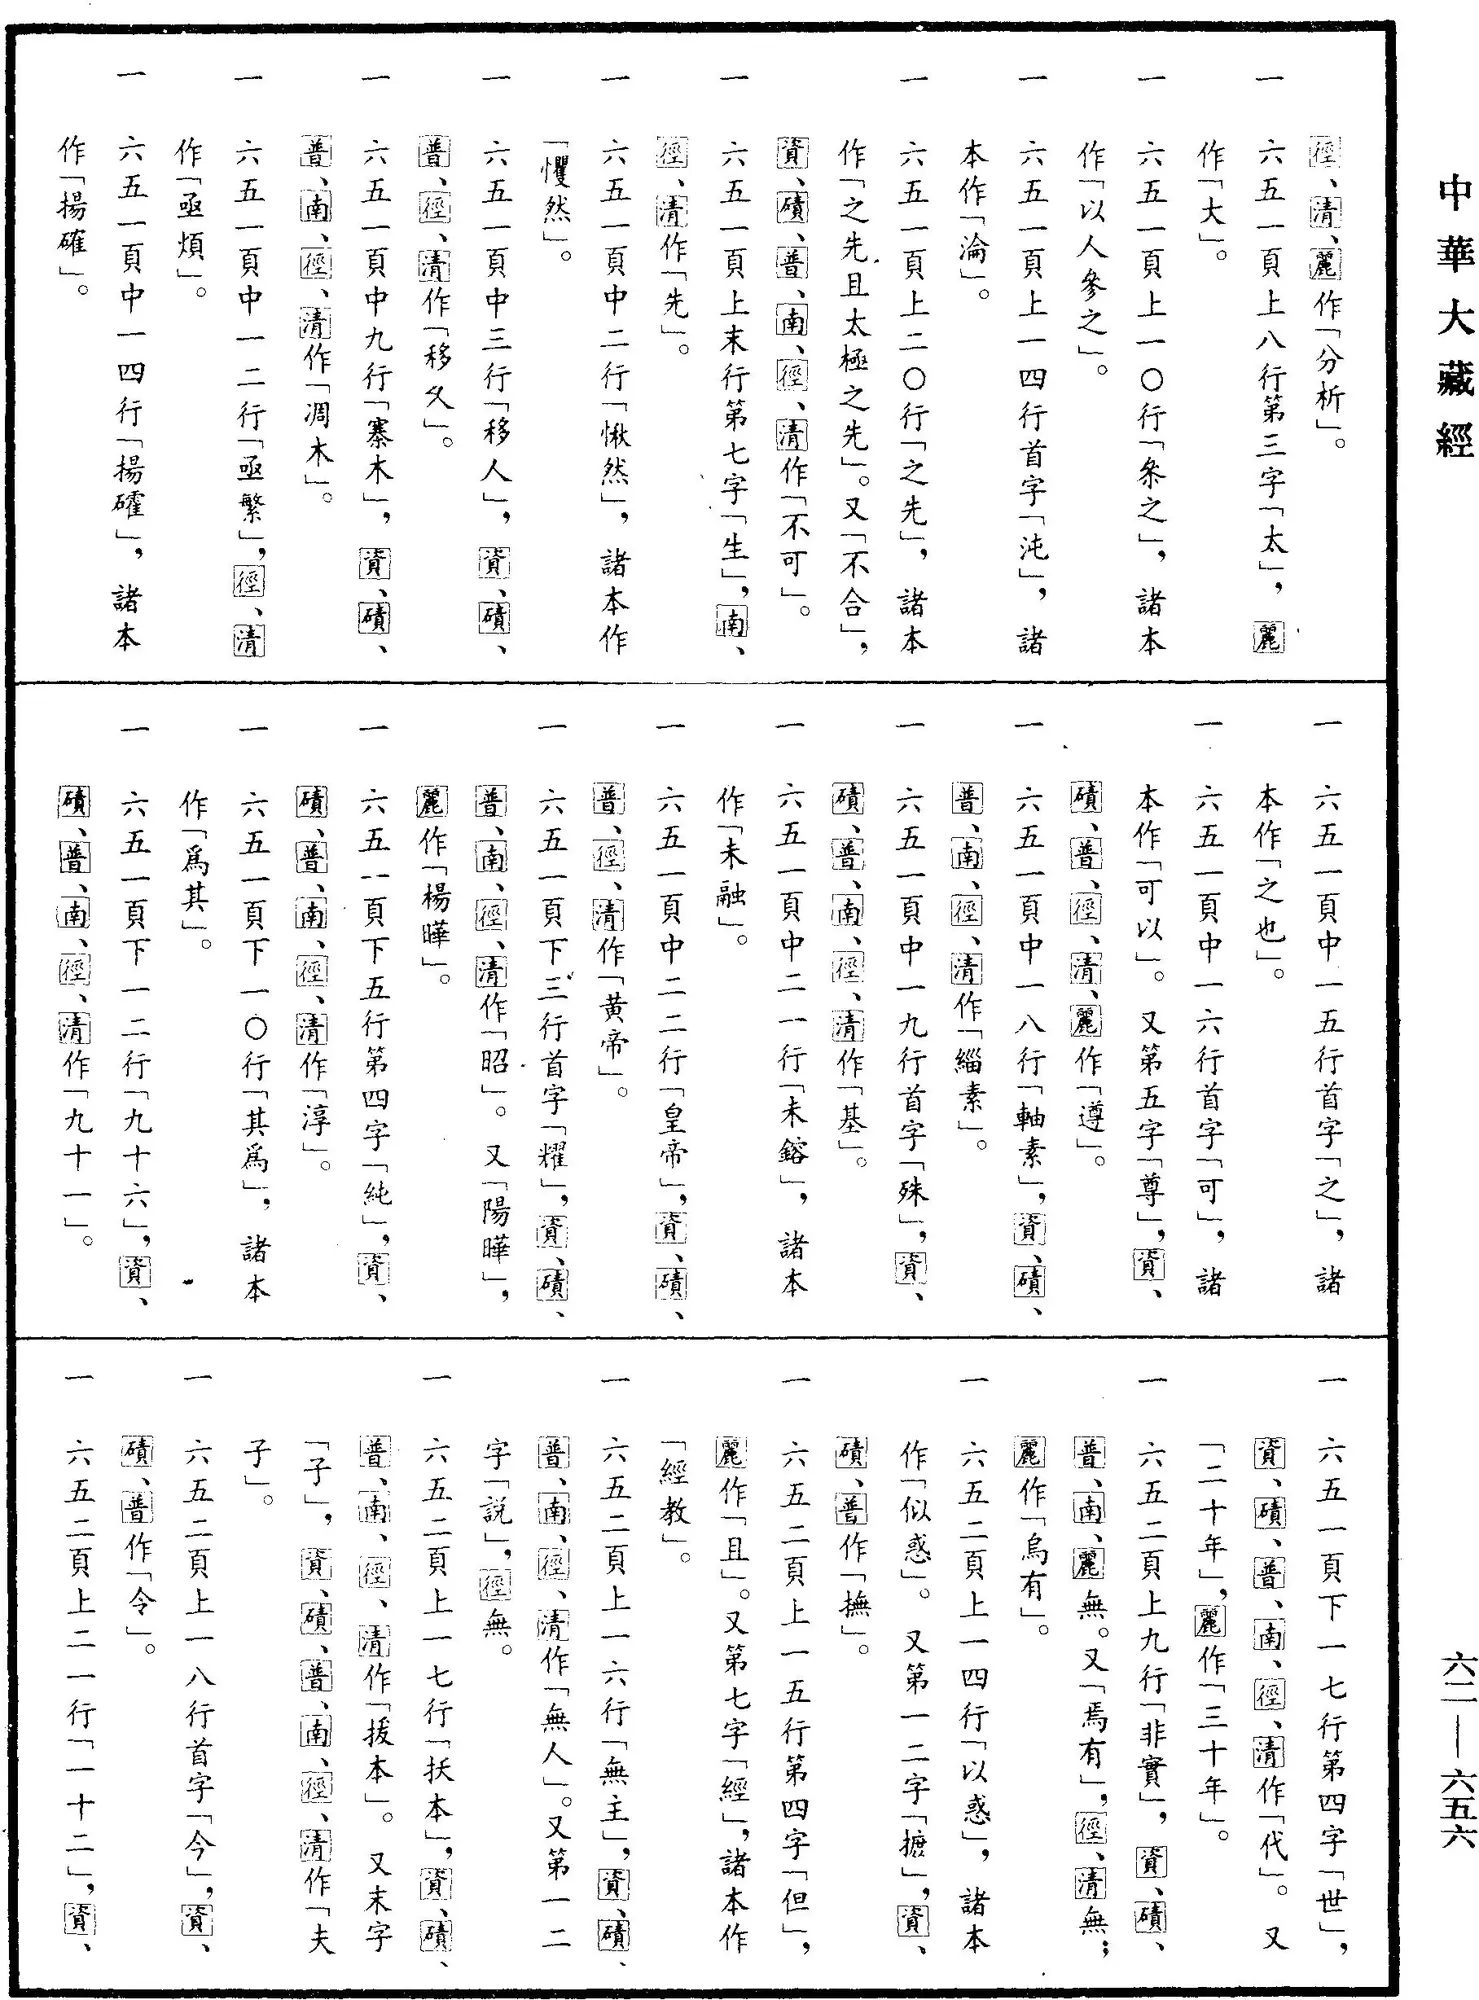 中華大藏經
徑、清、麗作「分析」。
一 六五一頁上八行第三字「太」，麗
作「大」。
一 六五一頁上一〇行「叅之」，諸本
作「以人參之」。
一 六五一頁上一四行首字「沌」，諸
本作「淪」。
一 六五一頁上二〇行「之先」，諸本
作「之先且太極之先」。又「不合」，
資、磧、普、南、徑、清作「不可」。
一 六五一頁上末行第七字「生」，南、
徑、清作「先」。
一 六五一頁中二行「愀然」，諸本作
「戄然」。
一 六五一頁中三行「移人」，資、磧、
普、徑、清作「移乆」。
一 六五一頁中九行「寨木」，資、磧、
普、南、徑、清作「凋木」。
一 六五一頁中一二行「亟繁」，徑、清
作「亟煩」。
一 六五一頁中一四行「揚礭」，諸本
作「揚確」。
一 六五一頁中一五行首字「之」，諸
本作「之也」。
一 六五一頁中一六行首字「可」，諸
本作「可以」。又第五字「尊」，資、
磧、普、徑、清、麗作「遵」。
一 六五一頁中一八行「軸素」，資、磧、
普、南、徑、清作「緇素」。
一 六五一頁中一九行首字「殊」，資、
磧、普、南、徑、清作「基」。
一 六五一頁中二一行「未鎔」，諸本
作「未融」。
一 六五一頁中二二行「皇帝」，資、磧、
普、徑、清作「黄帝」。
一 六五一頁下三行首字「耀」，資、磧、
普、南、徑、清作「昭」。又「陽曄」，
麗作「楊曄」。
一 六五一頁下五行第四字「純」，資、
磧、普、南、徑、清作「淳」。
一 六五一頁下一〇行「其爲」，諸本
作「爲其」。
一 六五一頁下一二行「九十六」，資、
磧、普、南、徑、清作「九十一」。
一 六五一頁下一七行第四字「世」，
資、磧、普、南、徑、清作「代」。又
「二十年」，麗作「三十年」。
一 六五二頁上九行「非實」，資、磧、
普、南、麗無。又「焉有」，徑、清無；
麗作「烏有」。
一 六五二頁上一四行「以惑」，諸本
作「似惑」。又第一二字「摭」，資、
磧、普作「撫」。
一 六五二頁上一五行第四字「但」，
麗作「且」。又第七字「經」，諸本作
「經教」。
一 六五二頁上一六行「無主」，資、磧、
普、南、徑、清作「無人」。又第一二
字「説」，徑無。
一 六五二頁上一七行「扶本」，資、磧、
普、南、徑、清作「拔本」。又末字
「子」，資、磧、普、南、徑、清作「夫
子」。
一 六五二頁上一八行首字「今」，資、
磧、普作「令」。
一 六五二頁上二一行「一十二」，資、
六二—六五六